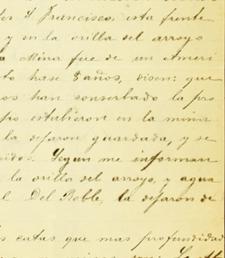 Sn Francisco esta frente
y en la orilla del arroyo
a Mina fue de un Ameri
to hase 8 años, disen: que
os han conserbado la pro
po estubieron en la mina
la dejaron guardada, y se
Segun me informan
la orilla del arroyo, y agua
Del Roble, la dejaron de
s catas que mas profundidad